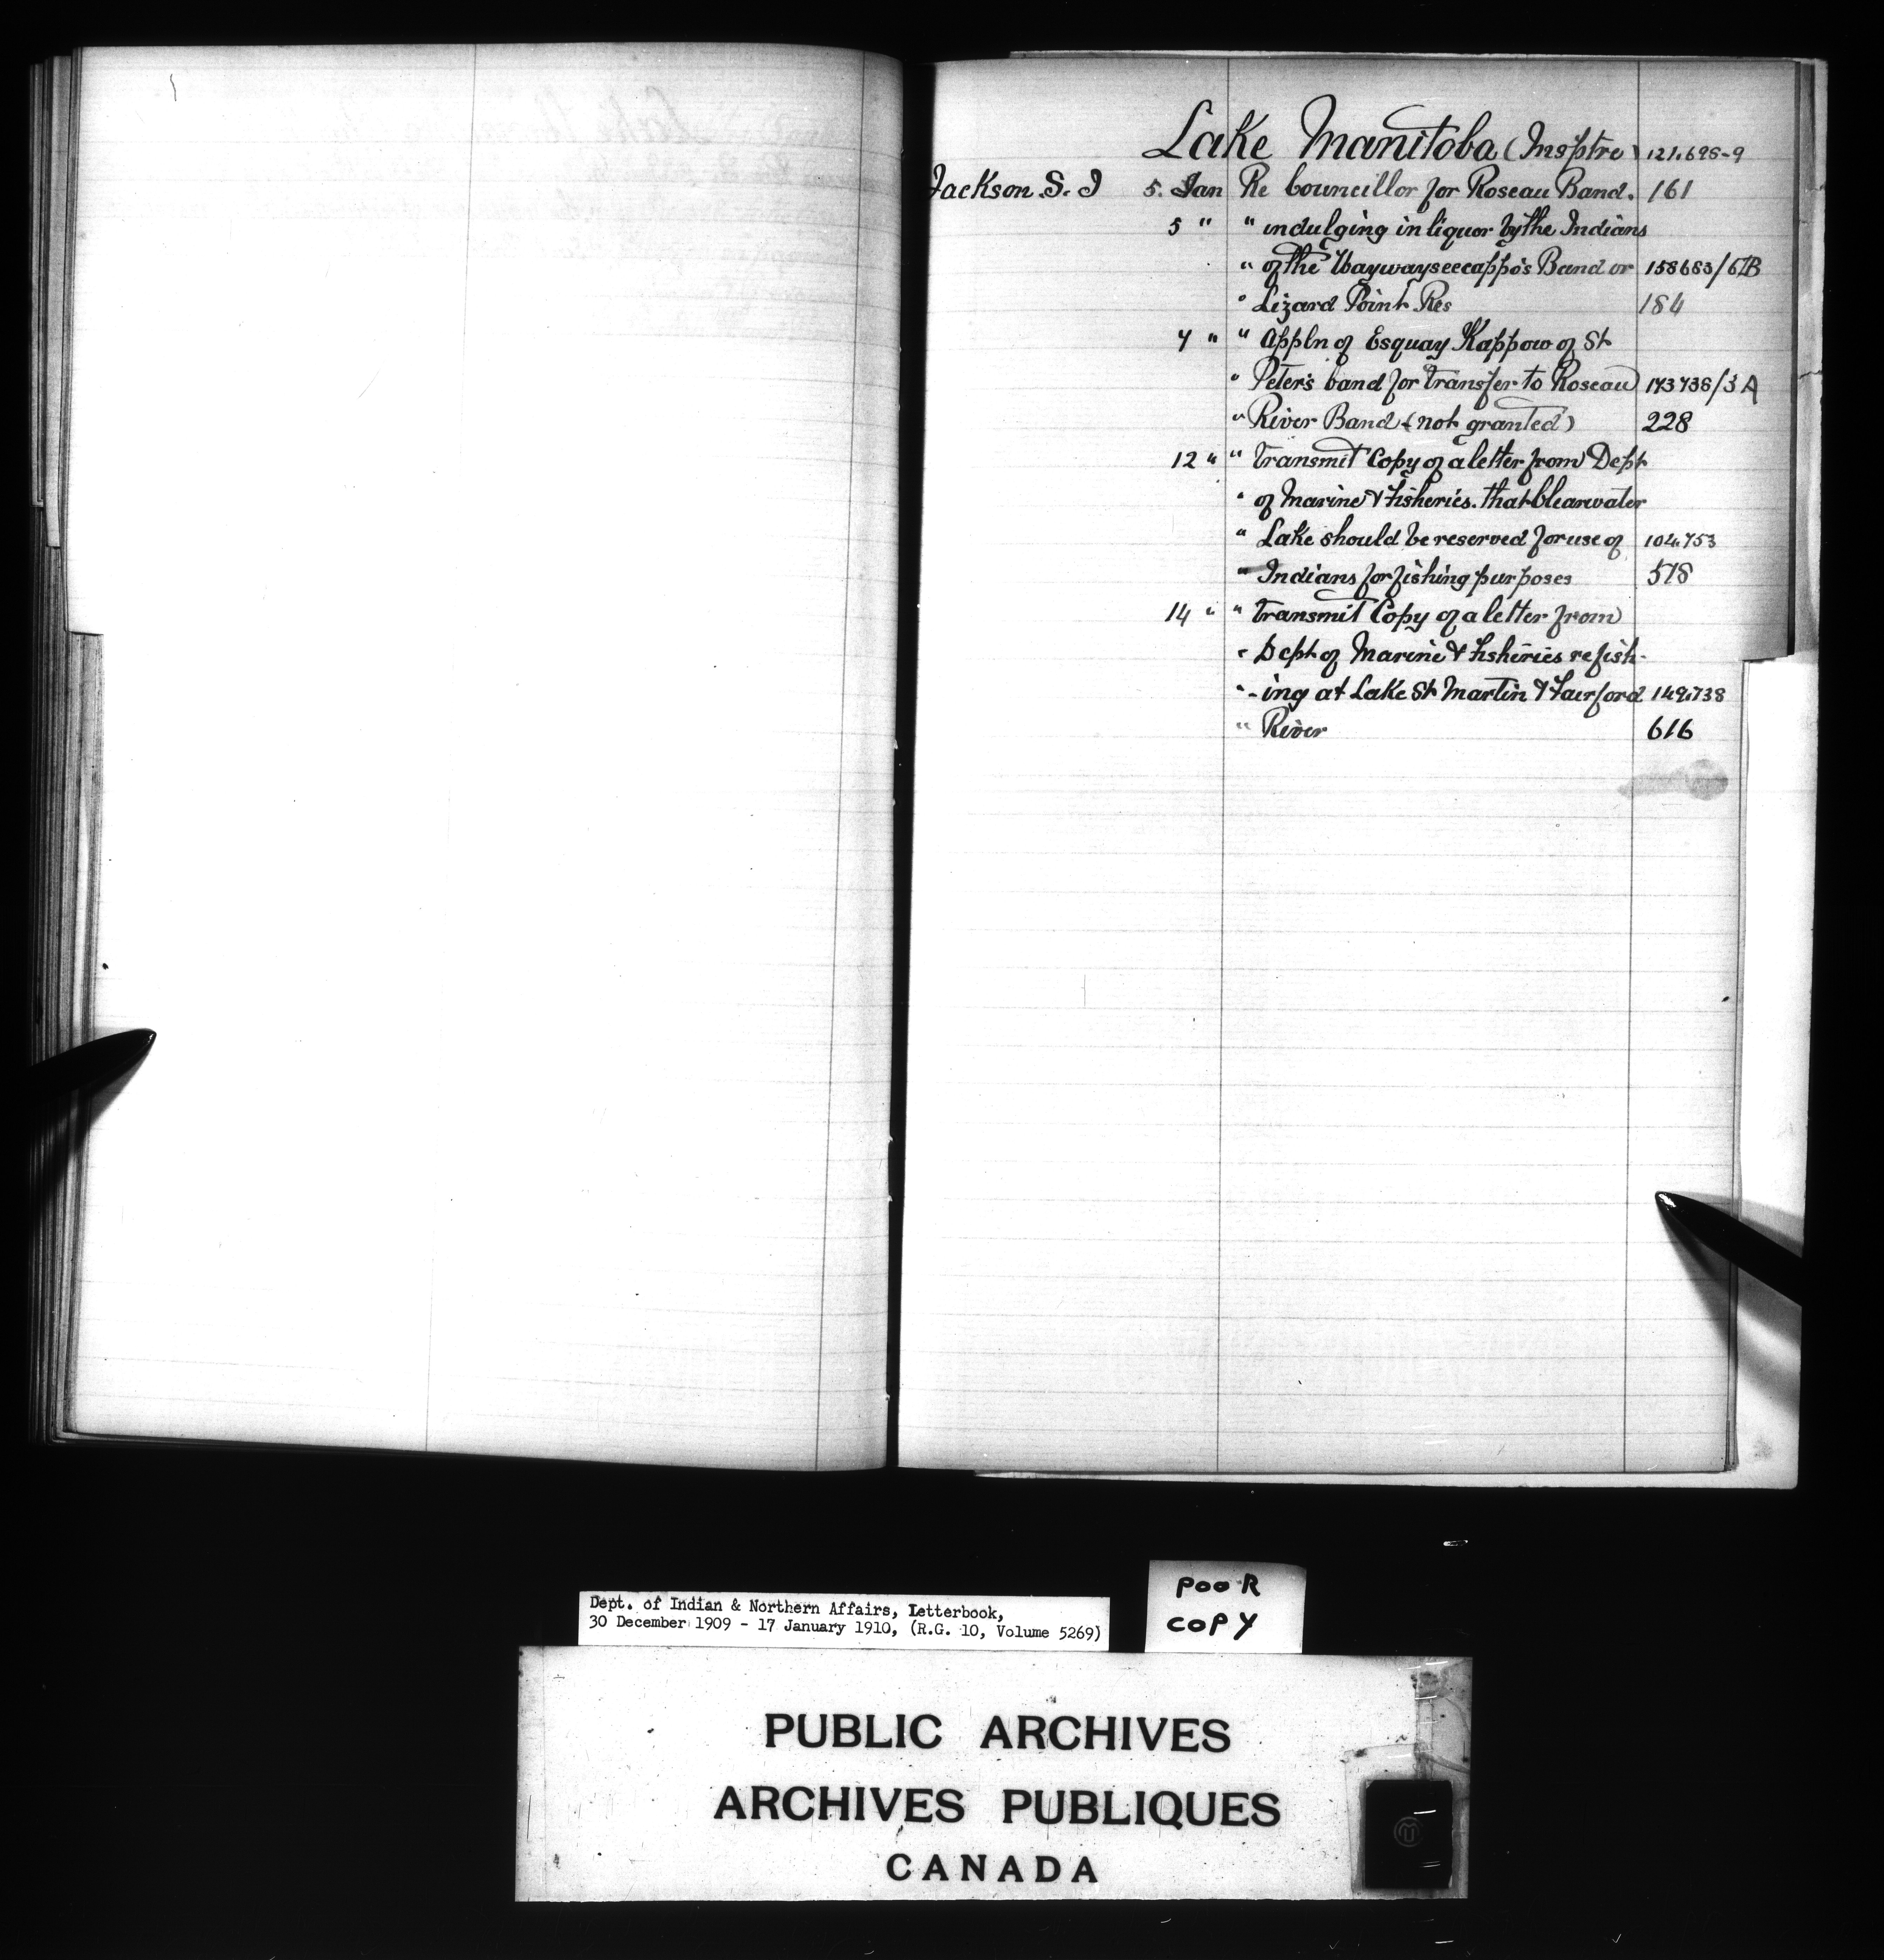 Lake Manitoba (Insptre) 121.698-9
Jackson. S. J 5. Jan Re Councillor for Roseau Band. 161
5 " " indulging in liquor by the Indians
" of the Waywayseecappo's Band or 158683/67B
" Lizard Point Res 184
7 " " Appln of Esquay Kappow of St
" Peter's band for transfer to Roseau 173738/3A
" River Band (not granted) 228
12 " " Transmit Copy of a letter from Dept
" of Marine & Fisheries. that Clearwater
" Lake should be reserved for use of 104.753
" Indians for fishing purposes 578
14 " " Transmit Copy of a letter from
" Dept of Marine & Fisheries re fish-
" -ing at Lake St Martin & Fairford 149.738
" River 616
Dept. of Indian & Northern Affairs, Letterbook,
30 December 1909 - 17 January 1910, (R.G. 10, Volume 5269)
POOR
COPY
PUBLIC ARCHIVES
ARCHIVES PUBLIQUES
CANADA